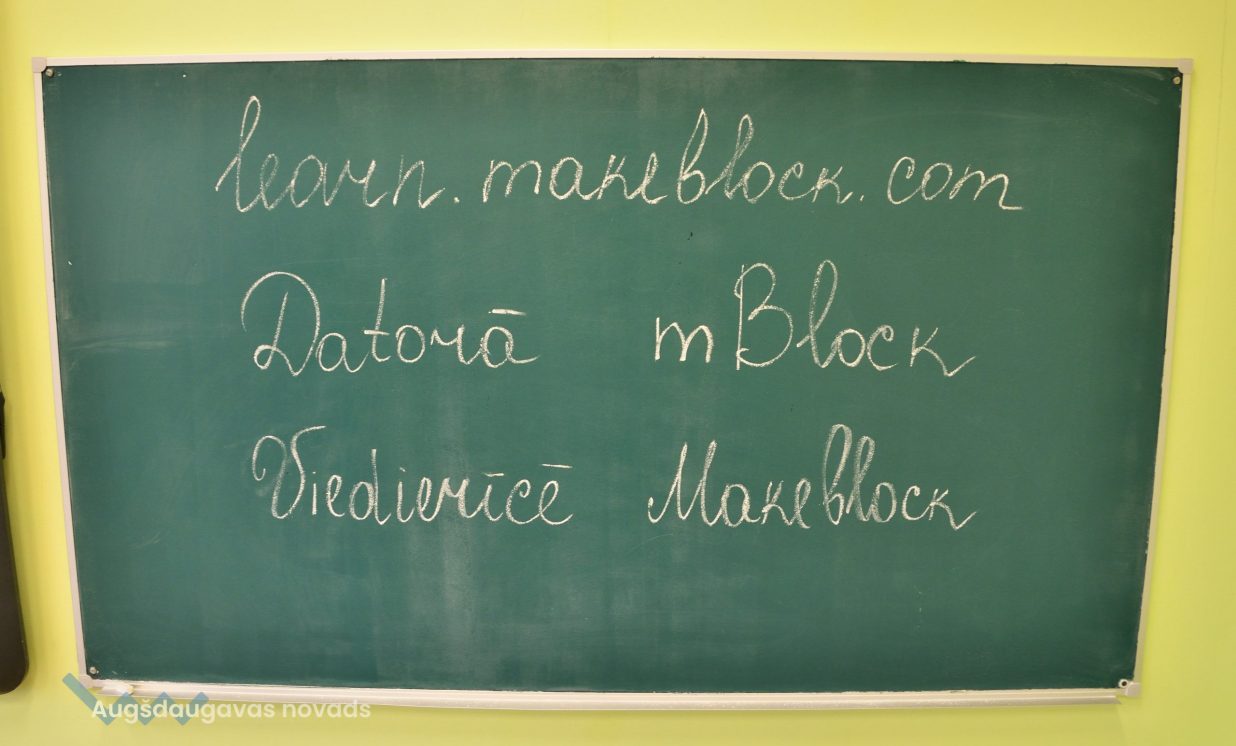 learn.makeblock.com
Datorā mBlock
Viedierīcē Makeblock
Augšdaugavas novads